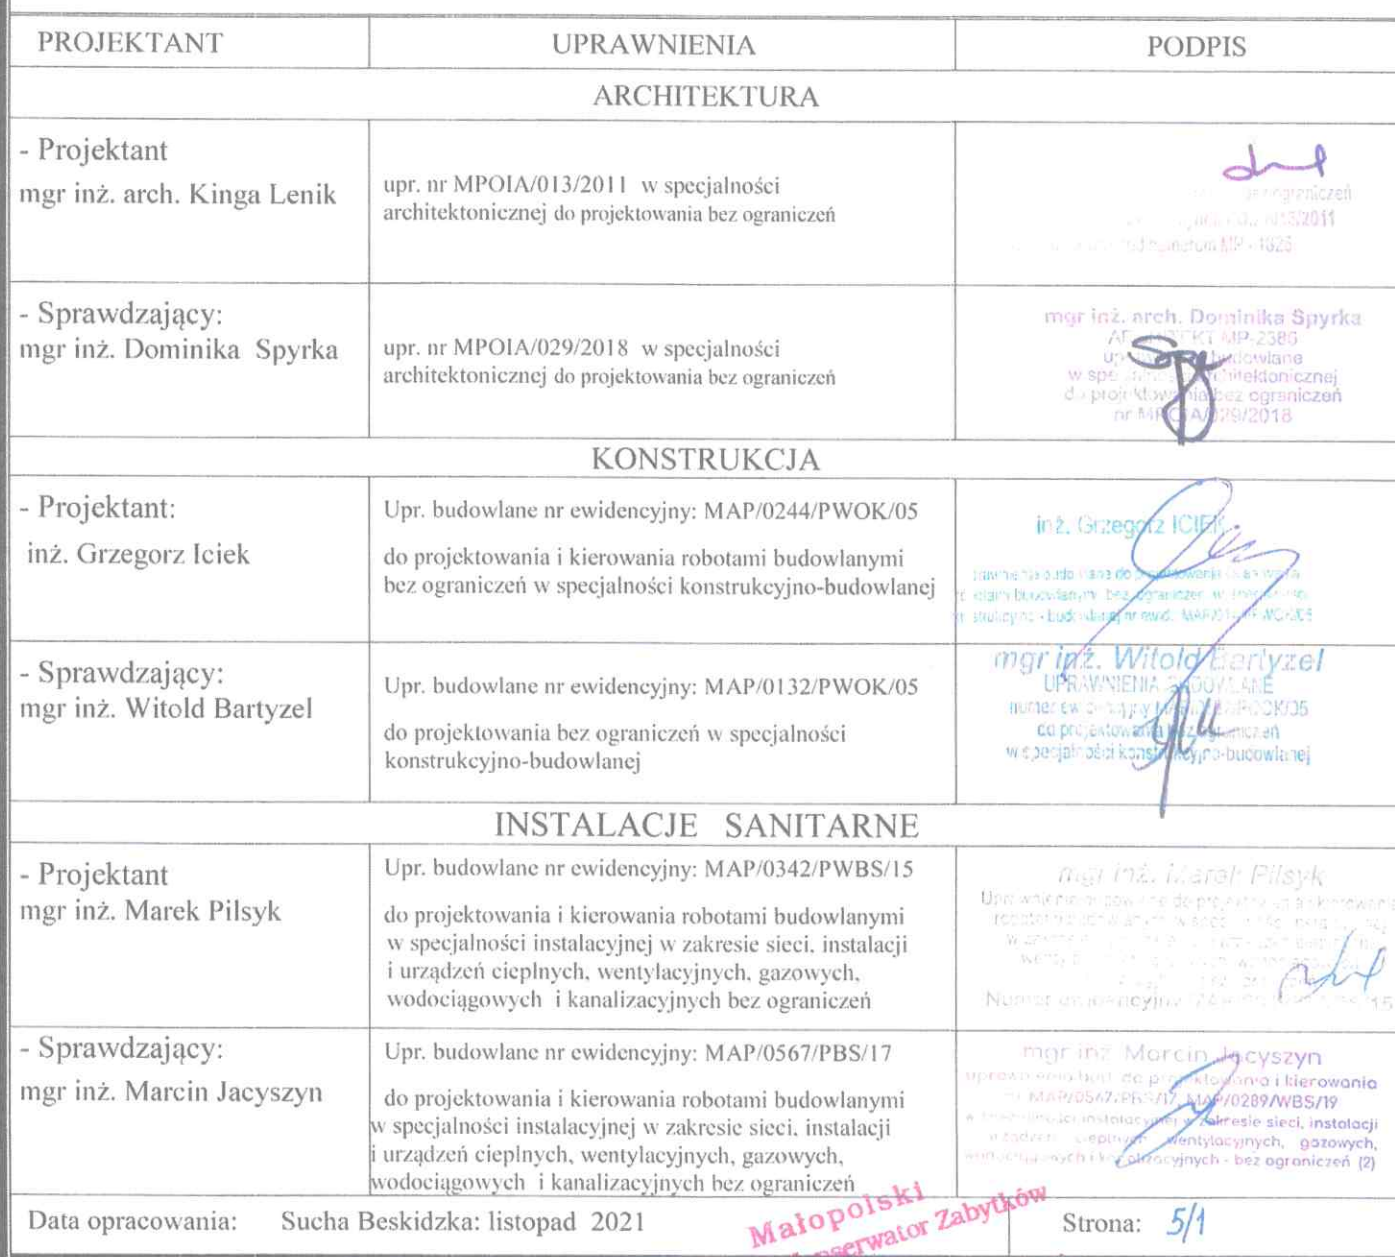 PROJEKTANT UPRAWNIENIA PODPIS
ARCHITEKTURA
- Projektant
mgr inż. arch. Kinga Lenik
upr. nr MPOIA/013/2011 w specjalności
architektonicznej do projektowania bez ograniczeń
ograniczeń
- Sprawdzający:
mgr inż. Dominika Spyrka
upr. nr MPOIA/029/2018 w specjalności
architektonicznej do projektowania bez ograniczeń
mgr inż. arch. Dominika Spyrka
MP-2386
budowlane
w architektonicznej
do projektowania bez ograniczeń
nr MPOIA/029/2018
KONSTRUKCJA
- Projektant:
inż. Grzegorz Iciek
Upr. budowlane nr ewidencyjny: MAP/0244/PWOK/05
do projektowania i kierowania robotami budowlanymi
bez ograniczeń w specjalności konstrukcyjno-budowlanej
inż. Grzegorz ICIEK
- Sprawdzający:
mgr inż. Witold Bartyzel
Upr. budowlane nr ewidencyjny: MAP/0132/PWOK/05
do projektowania bez ograniczeń w specjalności
konstrukcyjno-budowlanej
mgr inż. Witold Bartyzel
UPRAWNIENIA BUDOWLANE
do projektowania bez ograniczeń
w specjalności konstrukcyjno-budowlanej
INSTALACJE SANITARNE
- Projektant
mgr inż. Marek Pilsyk
Upr. budowlane nr ewidencyjny: MAP/0342/PWBS/15
do projektowania i kierowania robotami budowlanymi
w specjalności instalacyjnej w zakresie sieci, instalacji
i urządzeń cieplnych, wentylacyjnych, gazowych,
wodociągowych i kanalizacyjnych bez ograniczeń
mgr inż. Marek Pilsyk
- Sprawdzający:
mgr inż. Marcin Jacyszyn
Upr. budowlane nr ewidencyjny: MAP/0567/PBS/17
do projektowania i kierowania robotami budowlanymi
w specjalności instalacyjnej w zakresie sieci, instalacji
i urządzeń cieplnych, wentylacyjnych, gazowych,
wodociągowych i kanalizacyjnych bez ograniczeń
mgr inż. Marcin Jacyszyn
uprawnienia bud. do projektowania i kierowania
MAP/0567/PBS/17, MAP/0289/WBS/19
w specjalności instalacyjnej w zakresie sieci, instalacji
i urządzeń cieplnych, wentylacyjnych, gazowych,
wodociągowych i kanalizacyjnych - bez ograniczeń (2)
Data opracowania: Sucha Beskidzka: listopad 2021
Małopolski
Konserwator Zabytków
Strona: 5/1